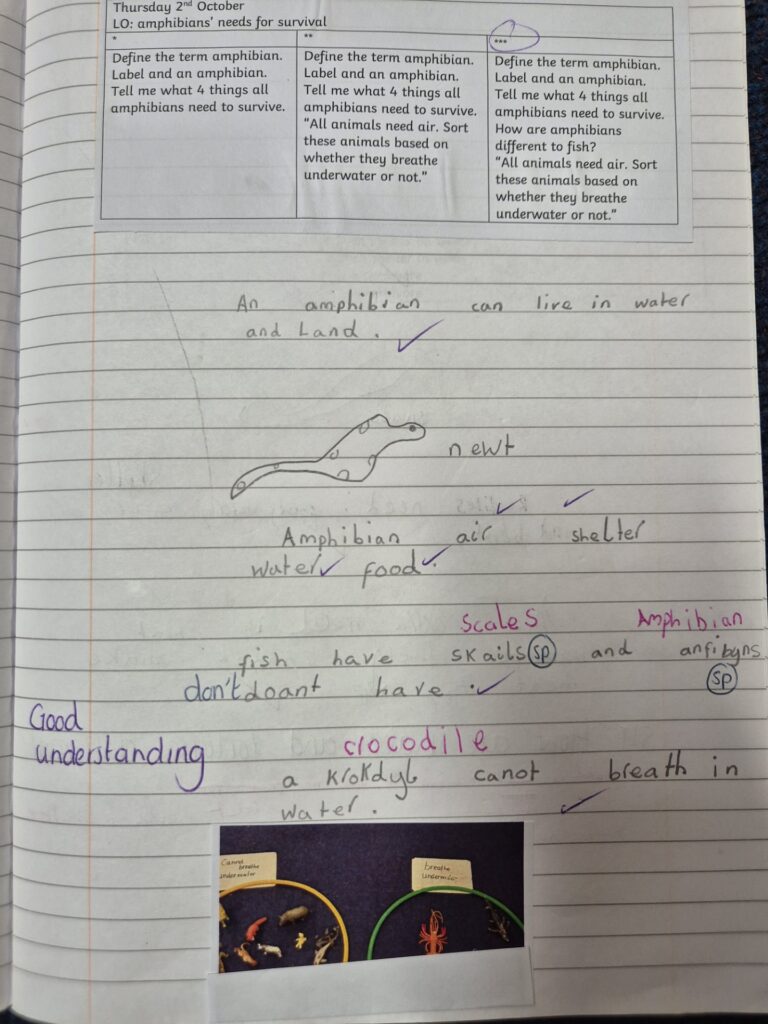 Thursday 2nd October
LO: amphibians' needs for survival
*
Define the term amphibian.
Label and an amphibian.
Tell me what 4 things all
amphibians need to survive.
**
Define the term amphibian.
Label and an amphibian.
Tell me what 4 things all
amphibians need to survive.
"All animals need air. Sort
these animals based on
whether they breathe
underwater or not."
***
Define the term amphibian.
Label and an amphibian.
Tell me what 4 things all
amphibians need to survive.
How are amphibians
different to fish?
"All animals need air. Sort
these animals based on
whether they breathe
underwater or not."
An amphibian can live in water
and Land.
newt
Amphibian air shelter
water food.
scales Amphibian
fish have skails sp and anfibyns
sp
don't doant have.
Good
understanding
crocodile
a canot breath in
water.
breathe
underwater
breathe